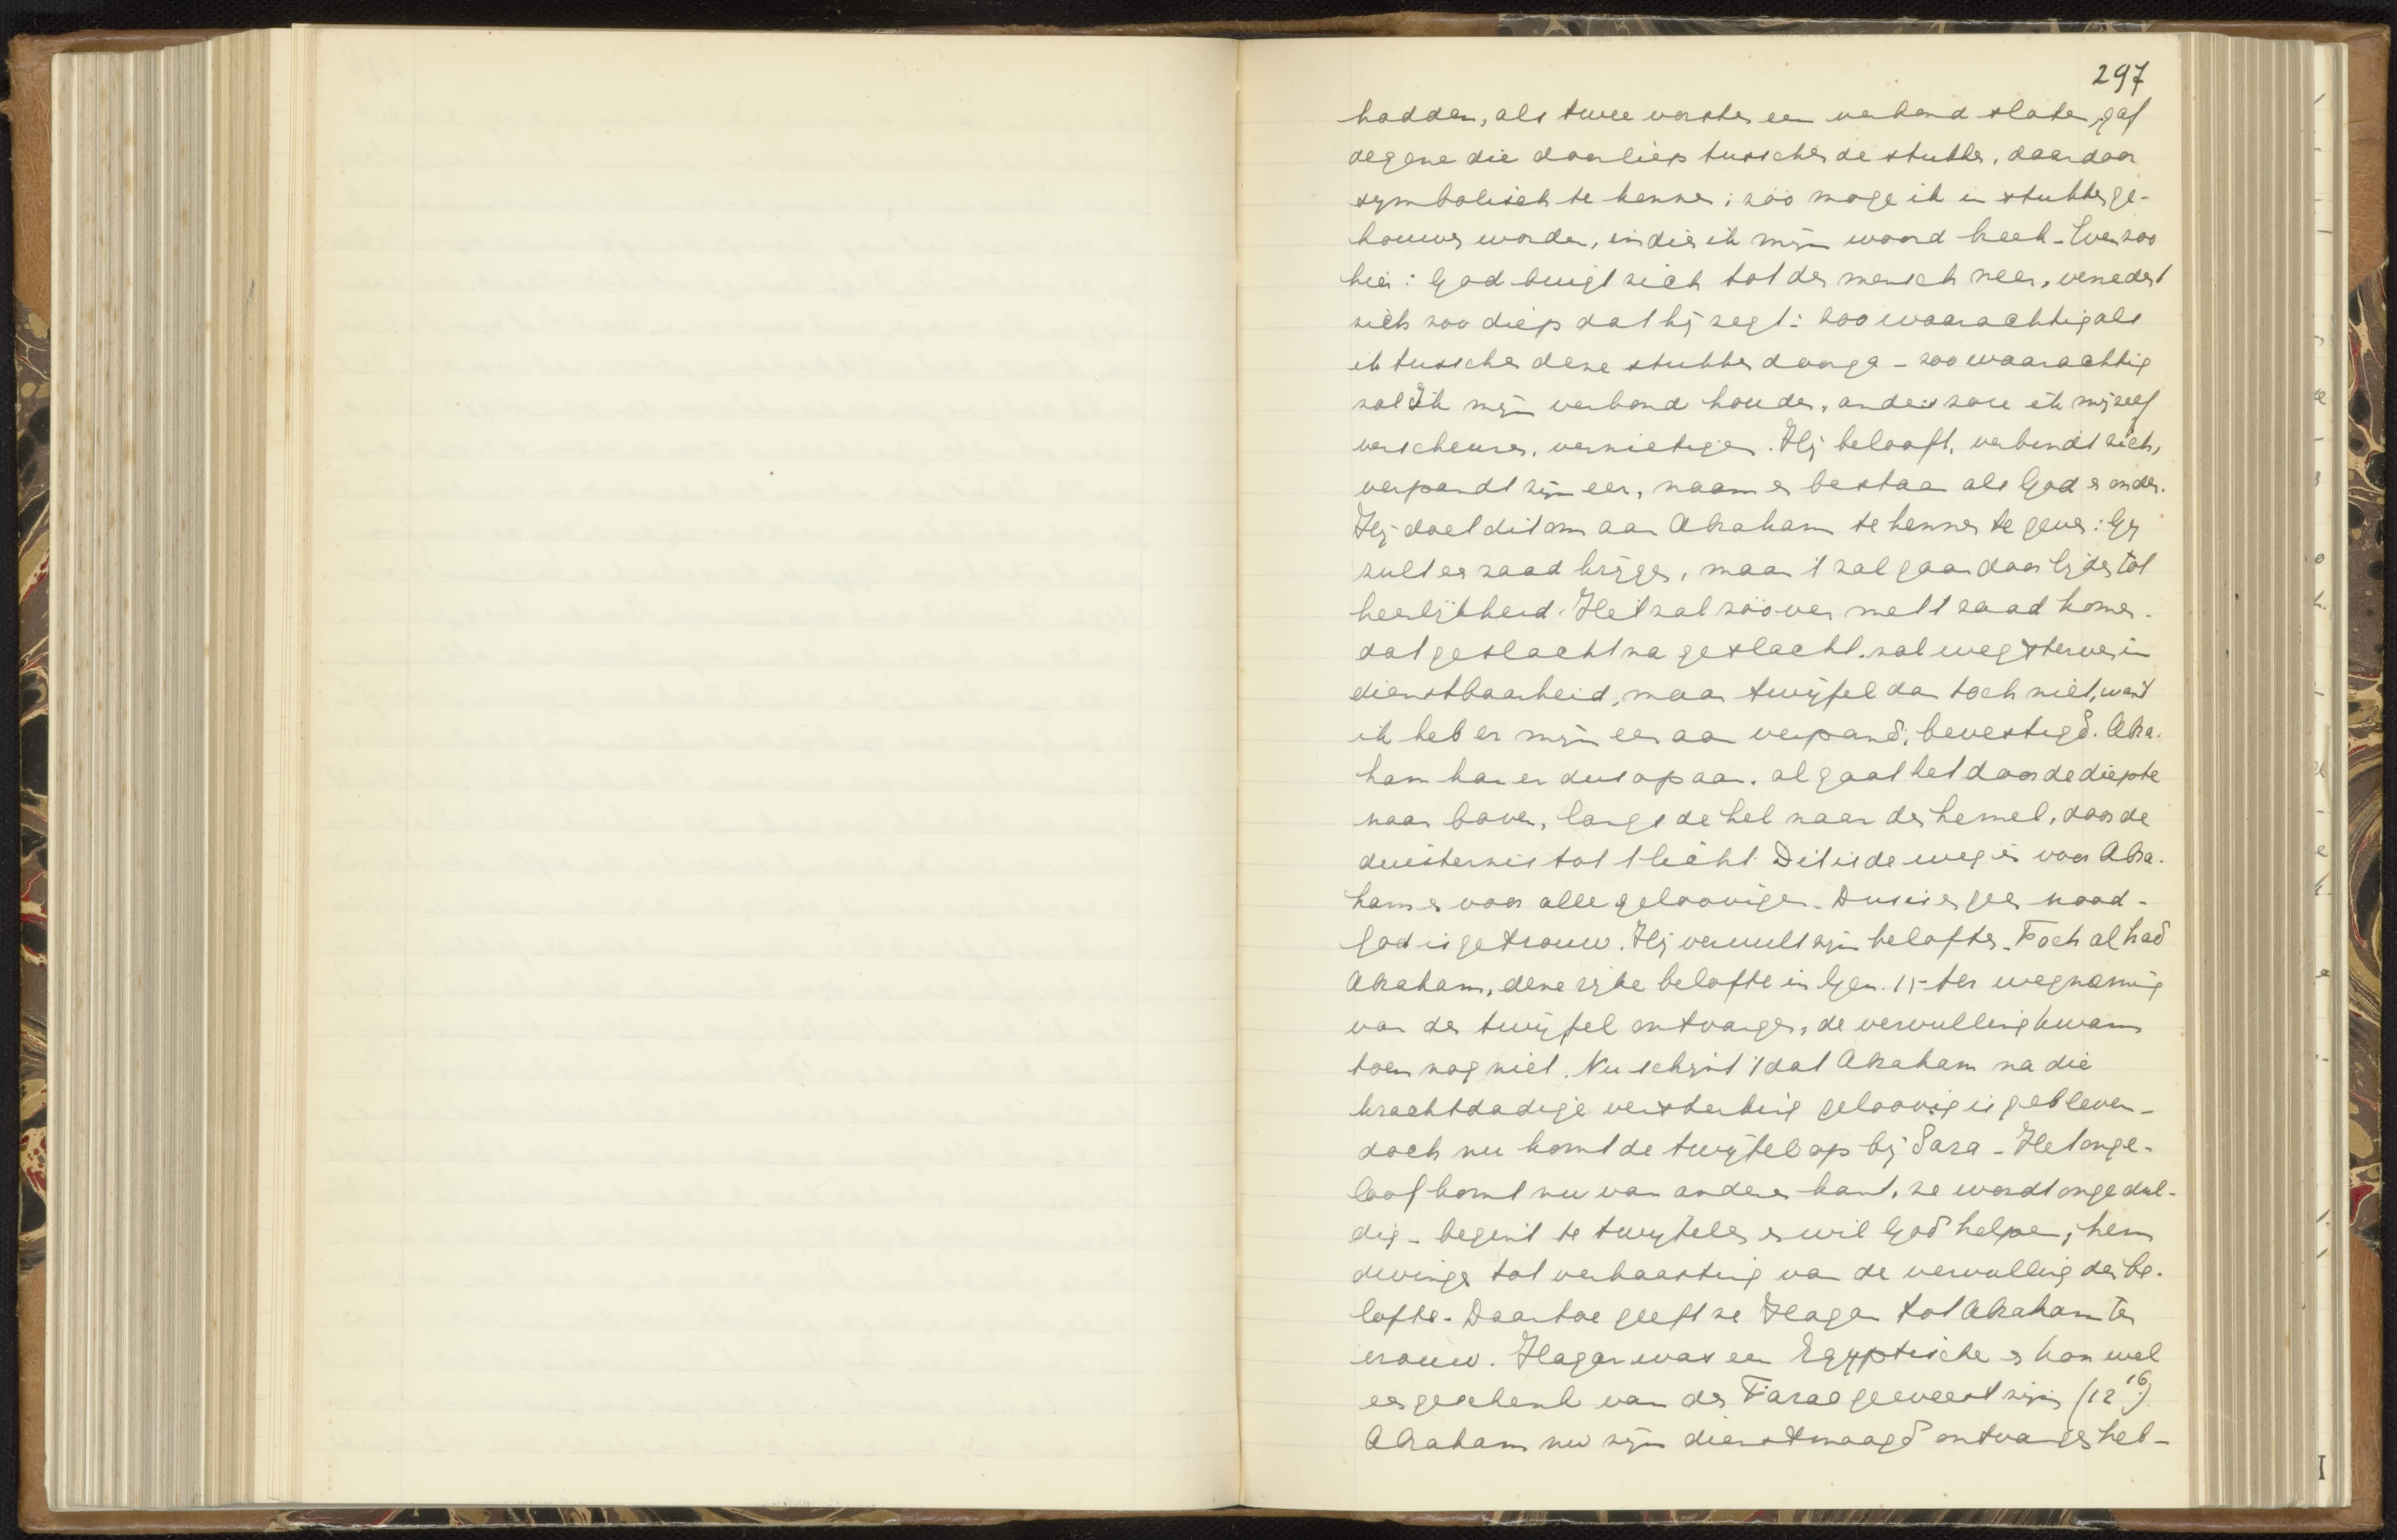 297
hadden, als twee vorsten een verbond sloten, gaf
degene die doorliep tusschen de stukken, daardoor
symbolisch te kennen: zóó moge ik in stukken ge-
houwen worden, indien ik mijn woord breek - Even zoo
hier: God buigt zich tot den mensch neer, vernedert
zich zoo diep dat hij zegt: zoo waarachtig als
ik tusschen deze stukken doorga - zoo waarachtig
zal Ik mijn verbond houden, anders zou ik mijzelf
verscheuren, vernietigen. Hij belooft, verbindt zich,
verpandt zijn eer, naam en bestaan als God er onder.
Hij doet dit om aan Abraham te kennen te geven: Gij
zult en zaad krijgen, maar 't zal gaan door lijden tot
heerlijkheid. Het zal zóóver met 't zaad komen.
dat geslacht na geslacht. zal wegsterven in
dienstbaarheid, maar twijfel dan toch niet, want
ik heb er mijn eer aan verpand, bevestigd. Abra-
ham kan er dus op aan. al gaat het door de diepte
naar boven, langs de hel naar den hemel, door de
duisternis tot 't licht. Dit is de weg èn voor Abra-
ham en voor alle geloovigen. Dus is er geen nood -
God is getrouw. Hij vervult zijn beloften. Toch al had
Abraham, deze rijke belofte in Gen. 15 ter wegneming
van den twijfel ontvangen, de vervulling kwam
toen nog niet. Nu schijnt 't dat Abraham na die
krachtdadige versterking geloovig is gebleven -
doch nu komt de twijfel op bij Sara - Het onge-
loof komt nu van andere kant, ze wordt ongedul-
dig - begint te twijfelen en wil God helpen, hem
dwingen tot verhaasting van de vervulling der be-
lofte. Daartoe geeft ze Hagar tot Abraham ter
vrouw. Hagar was een Egyptische en kan wel
een geschenk van den Farao geweest zijn (12 16.)
Abraham nu zijn dienstmaagd ontvangen heb-